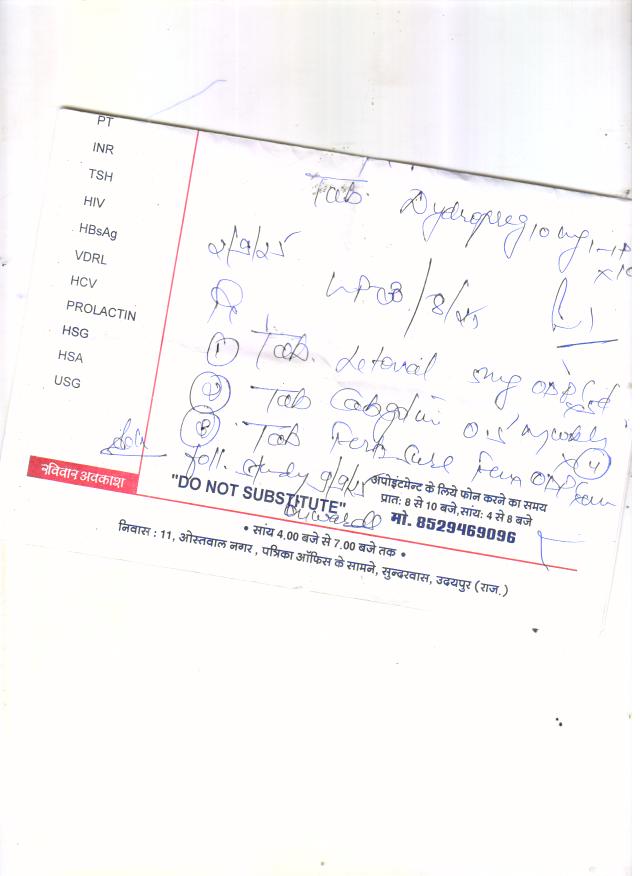 PT
INR
TSH
HIV
HBsAg
VDRL
HCV
PROLACTIN
HSG
HSA
USG
Tab. Dydropreg 10 mg
2/9/25
LPCB / 8/25
① Tab. Letoval 5mg
② Tab Cabgolin 0.5 mg weekly
③ Tab Ferti Cure Fem
foll. study 9/9/25
onwards
रविवार अवकाश
"DO NOT SUBSTITUTE"
अपोइंटमेन्ट के लिये फोन करने का समय
प्रात: 8 से 10 बजे,सांय: 4 से 8 बजे
मो. 8529469096
• सांय 4.00 बजे से 7.00 बजे तक •
निवास : 11, ओस्तवाल नगर , पत्रिका ऑफिस के सामने, सुन्दरवास, उदयपुर (राज.)